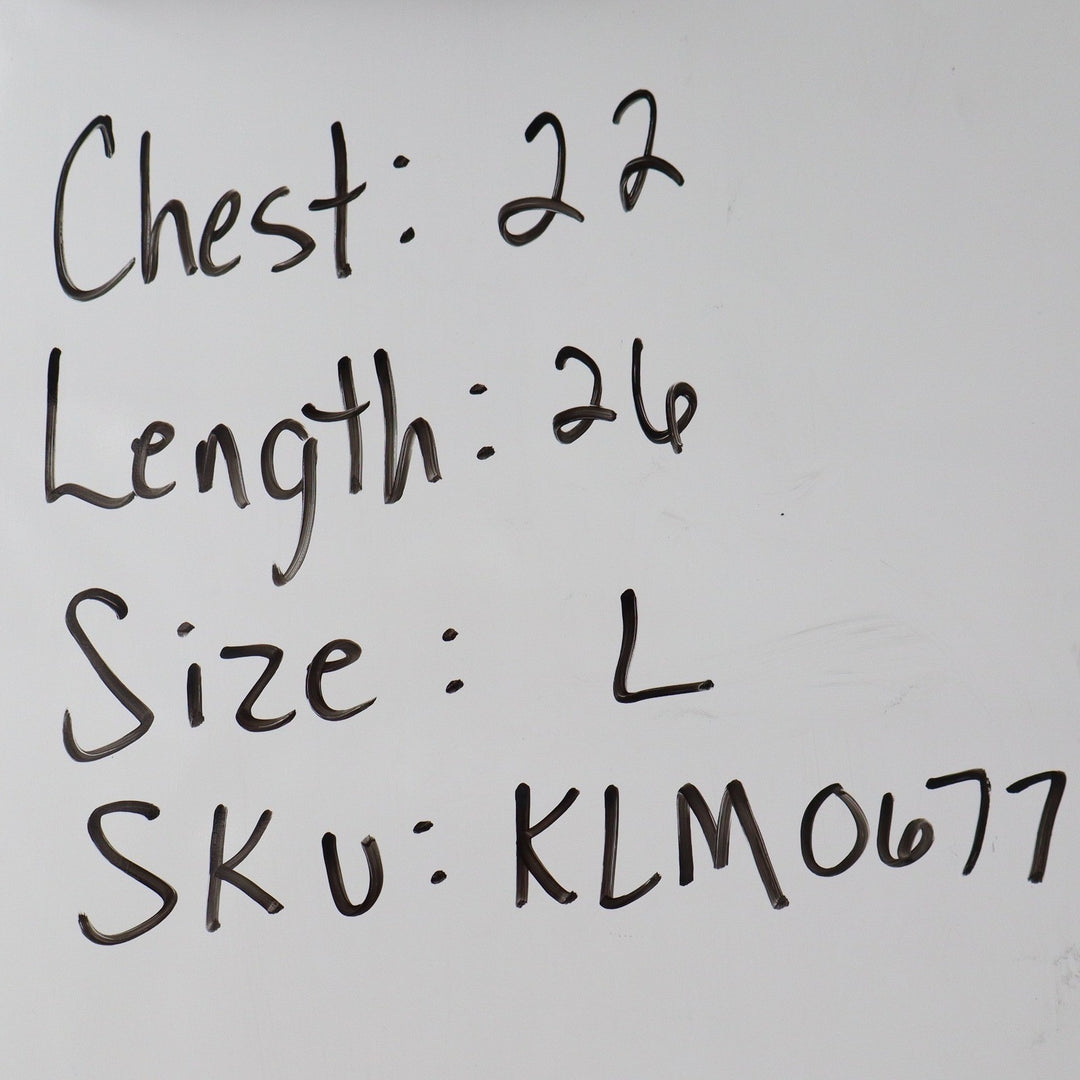 Chest: 22
Length: 26
Size: L
SKU: KLM0677